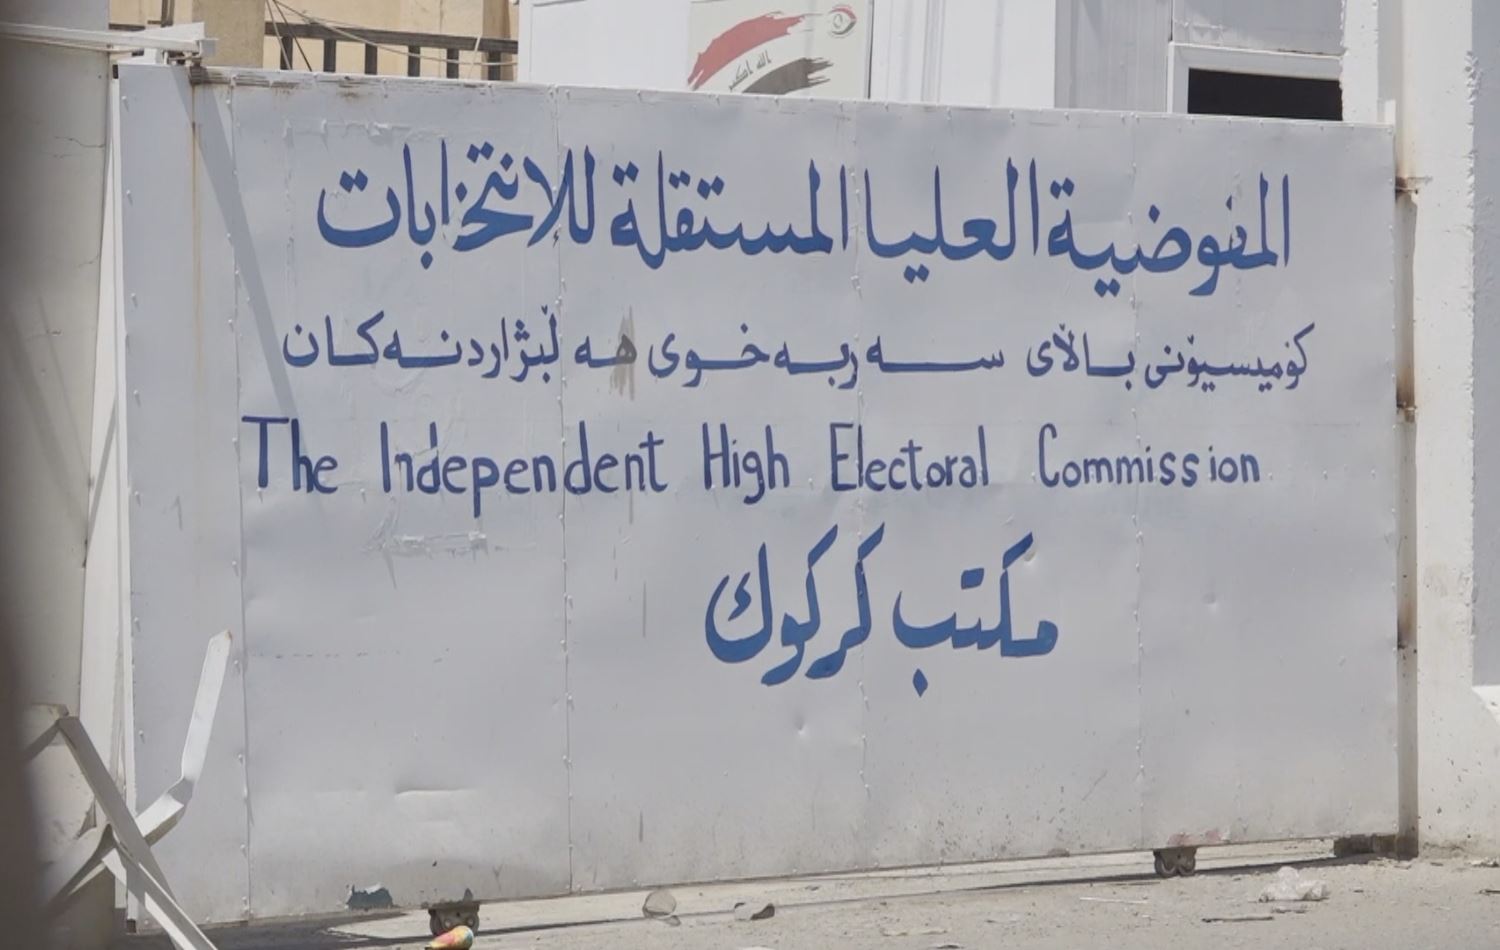 الله اكبر
المفوضية العليا المستقلة للانتخابات
كۆمیسیۆنی باڵای سەربەخۆی هەڵبژاردنەکان
The Independent High Electoral Commission
مكتب كركوك